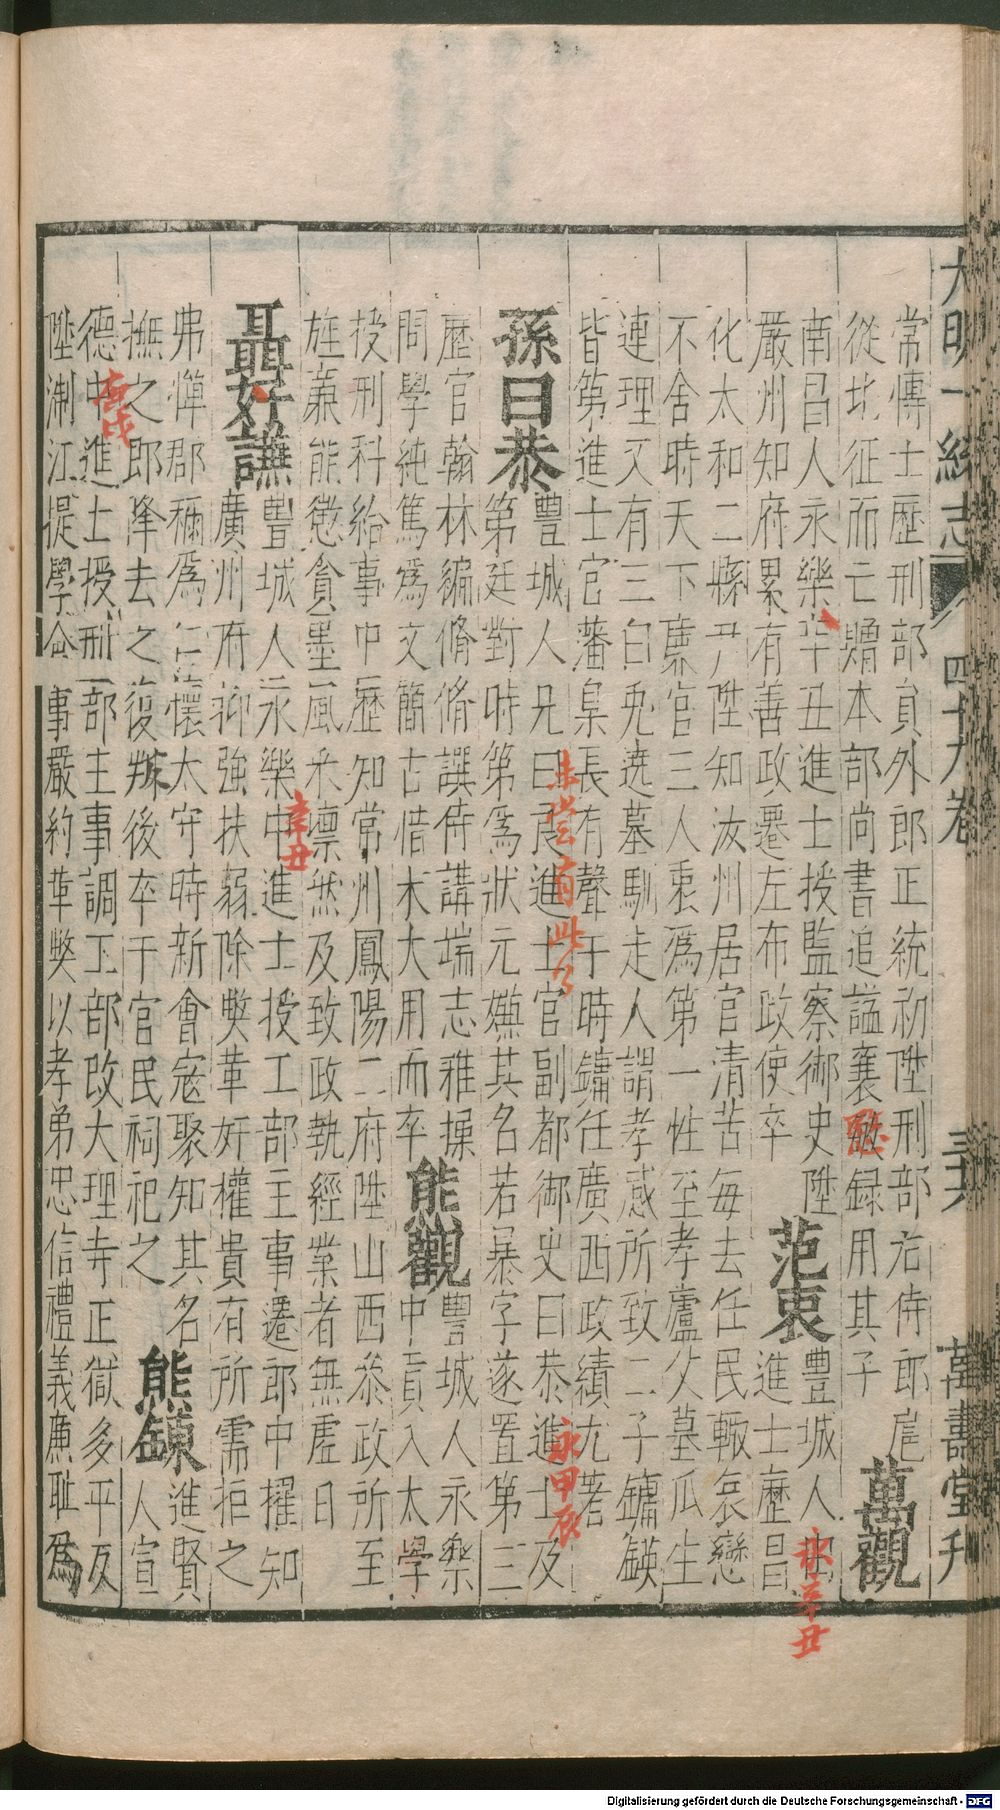 大明一統志 四十九卷 三六 萬壽堂刋
常博士歷刑部員外郎正統初陞刑部右侍郎扈
從北征而亡贈本部尚書追謚襄敏録用其子 萬觀
愍
南昌人永樂辛丑進士授監察御史陞
嚴州知府累有善政遷左布政使卒 范衷 豐城人
永辛丑
進士歷昌
化太和二縣尹陞知汝州居官清苦每去任民輙哀戀
不舍時天下廉官三人衷爲第一性至孝廬父墓瓜生
連理又有三白兎遶墓馴走人謂孝感所致二子鏞鍈
皆第進士官藩臬長有聲于時鏞任廣西政績尤著
孫曰恭 豐城人兄曰良進士官副都御史曰恭進士及
未嘗有此人
永甲辰
第廷對時第爲狀元嫌其名若暴字遂置第三
歷官翰林編脩脩譔侍講端志雅操 熊觀 豐城人永樂
中貢入太學
問學純篤爲文簡古惜未大用而卒
授刑科給事中歷知常州鳳陽二府陞山西叅政所至
旌亷能懲貪墨風采凛然及致政執經業者無虚日
聶好謙 豐城人永樂中進士授工部主事遷郎中擢知
辛丑
廣州府抑強扶弱除奬革奸權貴有所需拒之
弗憚郡稱爲仁懷太守時新會寇聚知其名
撫之即降去之復叛後卒于官民祠祀之 熊鍊 進賢
人宣
德中進士授刑部主事調工部改大理寺正獄多平反
庚戌
陞淛江提學僉事嚴約革奬以孝弟忠信禮義廉耻爲
Digitalisierung gefördert durch die Deutsche Forschungsgemeinschaft - DFG